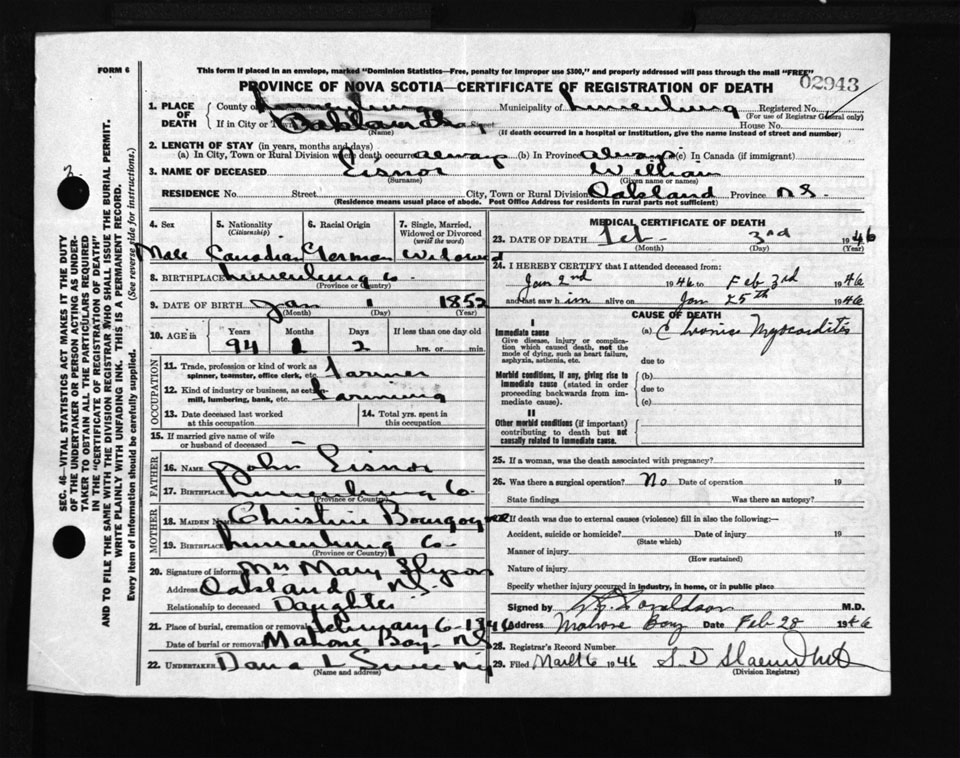 FORM 6
This form if placed in an envelope, marked "Dominion Statistics—Free, penalty for improper use $300," and properly addressed will pass through the mail "FREE"
02943
PROVINCE OF NOVA SCOTIA—CERTIFICATE OF REGISTRATION OF DEATH
1. PLACE OF DEATH County of Lunenburg Municipality of Lunenburg Registered No.
(For use of Registrar General only)
If in City or Town Oakland Street House No.
(Name) (If death occurred in a hospital or institution, give the name instead of street and number)
2. LENGTH OF STAY (in years, months and days)
(a) In City, Town or Rural Division where death occurred always (b) In Province always (c) In Canada (if immigrant)
3. NAME OF DECEASED Eisnor William
(Surname) (Given name or names)
RESIDENCE No. Street City, Town or Rural Division Oakland Province N.S.
(Residence means usual place of abode. Post Office Address for residents in rural parts not sufficient)
4. Sex 5. Nationality (Citizenship) 6. Racial Origin 7. Single, Married, Widowed or Divorced (write the word)
Male Canadian German Widowed
8. BIRTHPLACE Lunenburg Co.
(Province or Country)
9. DATE OF BIRTH Jan 1 1852
(Month) (Day) (Year)
10. AGE in Years Months Days If less than one day old
94 1 2 hrs. or min.
OCCUPATION
11. Trade, profession or kind of work as spinner, teamster, office clerk, etc. Farmer
12. Kind of industry or business, as cotton mill, lumbering, bank, etc. Farming
13. Date deceased last worked at this occupation 14. Total yrs. spent in this occupation
15. If married give name of wife or husband of deceased
FATHER
16. NAME John Eisnor
17. BIRTHPLACE Lunenburg Co
(Province or Country)
MOTHER
18. MAIDEN NAME Christine Bourgogne
19. BIRTHPLACE Lunenburg Co
(Province or Country)
20. Signature of informant Mrs Mary
Address Oakland N.S.
Relationship to deceased Daughter
21. Place of burial, cremation or removal February 6-1946
Date of burial or removal Mahone Bay N.S
22. UNDERTAKER Dana L Sweeny
(Name and address)
MEDICAL CERTIFICATE OF DEATH
23. DATE OF DEATH Feb 3rd 1946
(Month) (Day)
24. I HEREBY CERTIFY that I attended deceased from:
Jan 2nd 1946 to Feb 3rd 1946
and last saw him alive on Jan 25th 1946
CAUSE OF DEATH
I
Immediate cause (a) Chronic Myocarditis
Give disease, injury or complication which caused death, not the mode of dying, such as heart failure, asphyxia, asthenia, etc.
due to
Morbid conditions, if any, giving rise to immediate cause (stated in order proceeding backwards from immediate cause).
(b)
due to
(c)
II
Other morbid conditions (if important) contributing to death but not causally related to immediate cause.
25. If a woman, was the death associated with pregnancy?
26. Was there a surgical operation? No Date of operation 19
State findings Was there an autopsy?
If death was due to external causes (violence) fill in also the following:—
Accident, suicide or homicide? Date of injury 19
(State which)
Manner of injury
(How sustained)
Nature of injury
Specify whether injury occurred in industry, in home, or in public place
Signed by Donaldson M.D.
Address Mahone Bay Date Feb 28 1946
28. Registrar's Record Number
29. Filed March 6 1946 S. D
(Division Registrar)
SEC. 46—VITAL STATISTICS ACT MAKES IT THE DUTY
OF THE UNDERTAKER OR PERSON ACTING AS UNDER-
TAKER TO OBTAIN ALL THE PARTICULARS REQUIRED
IN THE "CERTIFICATE OF REGISTRATION OF DEATH"
AND TO FILE THE SAME WITH THE DIVISION REGISTRAR WHO SHALL ISSUE THE BURIAL PERMIT.
WRITE PLAINLY WITH UNFADING INK. THIS IS A PERMANENT RECORD.
Every item of information should be carefully supplied. (See reverse side for instructions.)